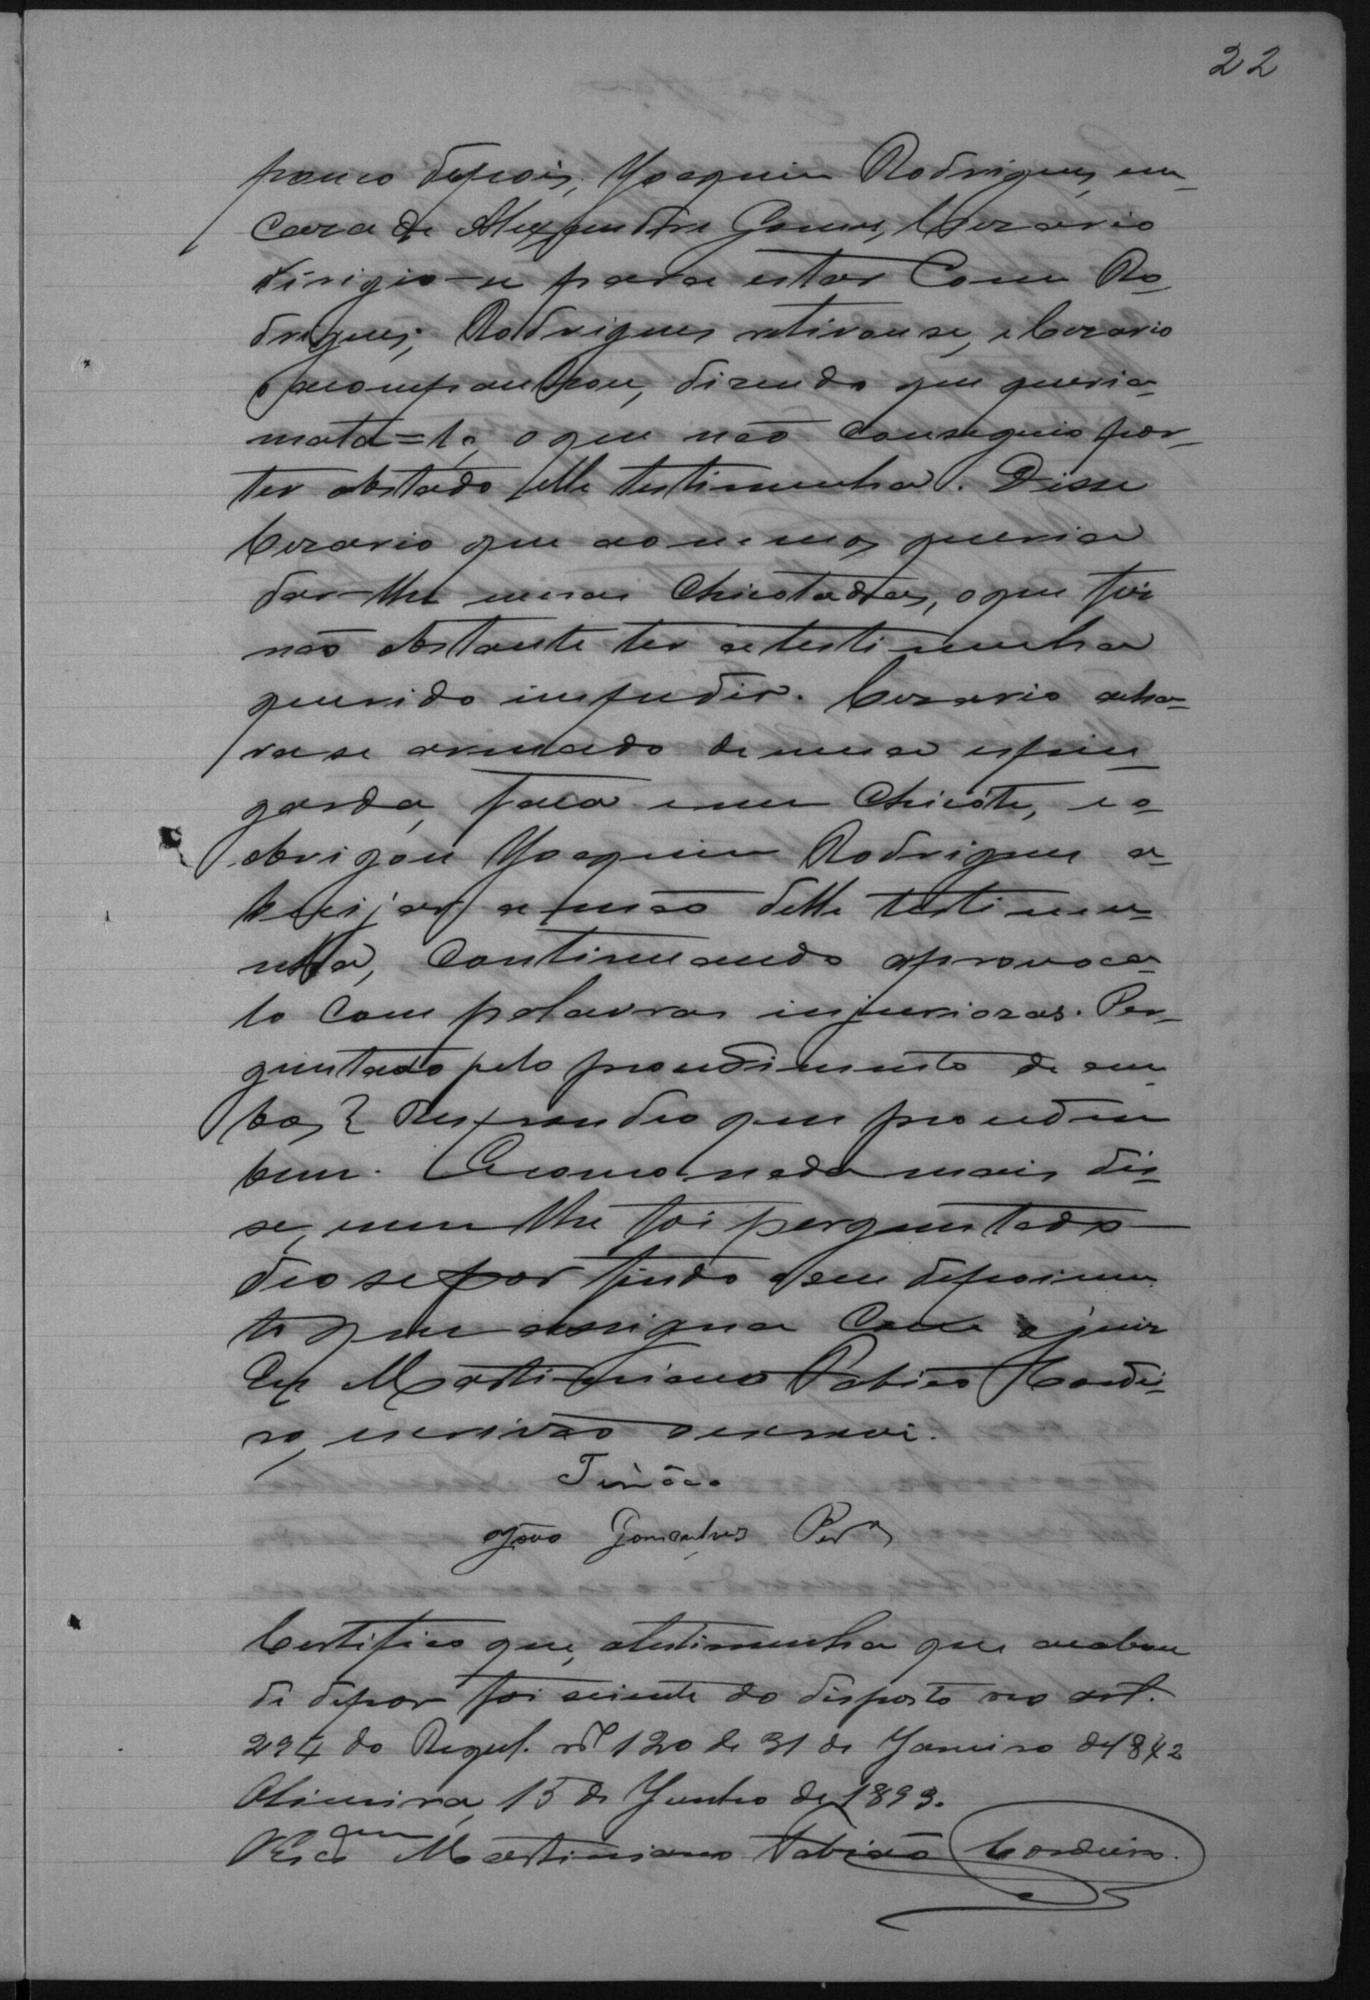 22
pouco depois, Joaquim Rodrigues, em
casa de Alexandre Gomes, Cezario
dirigio-se para estar com Ro-
drigues; Rodrigues retirou se, e Cezario
o acompanhou, dizendo que queria
mata=lo, o que não conseguio por
ter obstado elle testimunha. Disse
Cezario que ao menos queria
dar-lhe umas chicotadas, o que foi
não obstante ter a testimunha
querido impedir. Cezario acha-
va se armado de uma espin-
garda, faca e um chicote, e o
obrigou Joaquim Rodrigues a
beijar a mão delle testimu-
nha, continuando a provoca-
lo com palavras injuriozas. Per-
guntado pelo procedimento de am-
bos? Respondeo que procedem
bem. E como nada mais dis-
se, nem lhe foi perguntado
deo se por findo o seu depoimen-
to que assigna com o juiz
Eu Martiniano Fabião Cordei-
ro, escrivão o escrevi.
João Gonçalves Per.ª
Certifico que, a testimunha que acabou
de depor foi sciente do disposto no art.
294 do Regul. nº 120 de 31 de Janeiro de 1842
15 de Junho de 1893.
Martiniano Fabião Cordeiro.